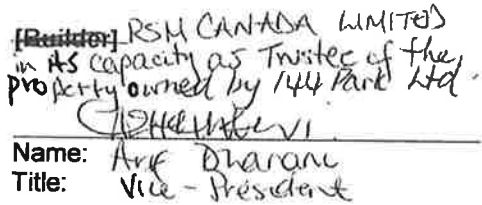 [Builder] RSM CANADA LIMITED
in its capacity as Trustee of the
property owned by 144 Park Ltd.
Name: Arif Dharani
Title: Vice-President